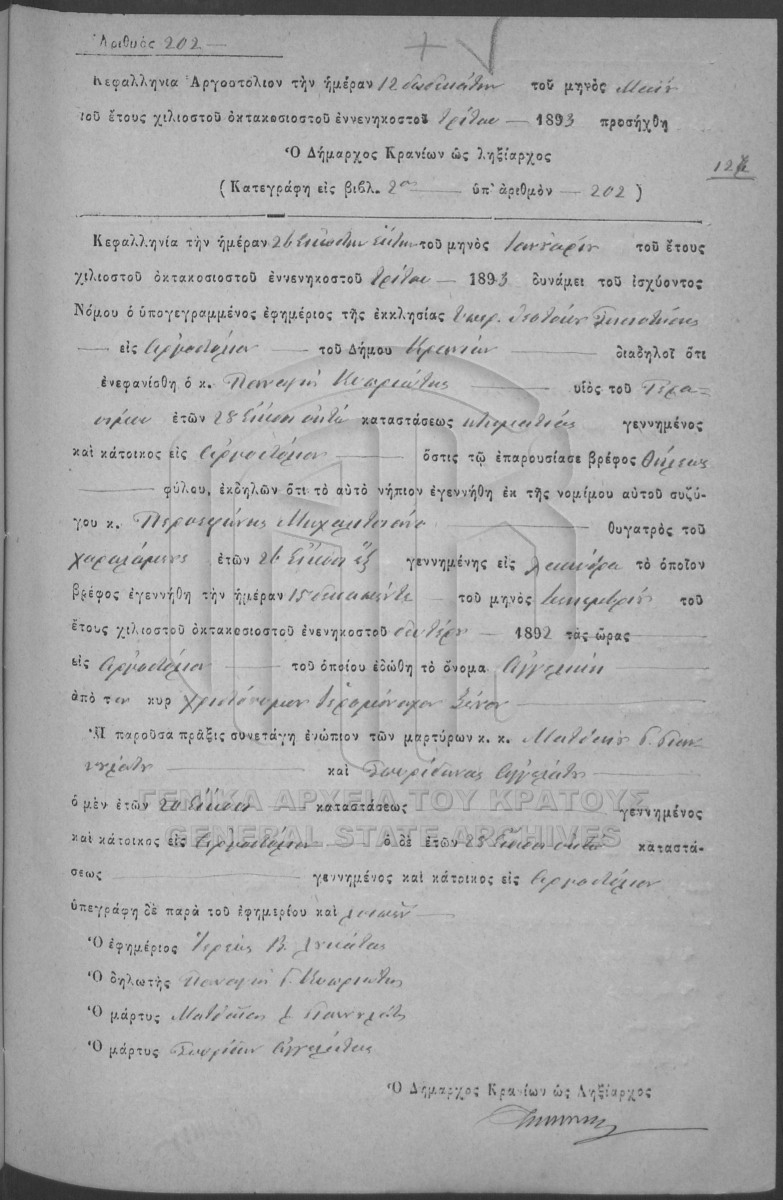 Ἀριθμὸς 202 —
Κεφαλληνία Ἀργοστόλιον τὴν ἡμέραν 12 δωδεκάτην τοῦ μηνὸς Μαΐου
τοῦ ἔτους χιλιοστοῦ ὀκτακοσιοστοῦ ἐννενηκοστοῦ τρίτου — 1893 προσήχθη
Ὁ Δήμαρχος Κρανίων ὡς ληξίαρχος
(Κατεγράφη εἰς βιβλ. 2ον — ὑπ' ἀριθμὸν — 202)
Κεφαλληνία τὴν ἡμέραν 26 εἰκοστὴν ἕκτην τοῦ μηνὸς Ἰανουαρίου τοῦ ἔτους
χιλιοστοῦ ὀκτακοσιοστοῦ ἐννενηκοστοῦ τρίτου — 1893 δυνάμει τοῦ ἰσχύοντος
Νόμου ὁ ὑπογεγραμμένος ἐφημέριος τῆς ἐκκλησίας Ὑπερ. Θεοτόκου
— εἰς Ἀργοστόλιον — τοῦ Δήμου Κρανίων — διαδηλοῖ ὅτι
ἐνεφανίσθη ὁ κ. Παναγῆς Κυπριώτης — υἱὸς τοῦ Γερα-
σίμου ἐτῶν 28 εἴκοσι ὀκτὼ καταστάσεως κτηματίας γεννημένος
καὶ κάτοικος εἰς Ἀργοστόλιον — ὅστις τῷ ἐπαρουσίασε βρέφος θήλεως
— φύλου, ἐκδηλῶν ὅτι τὸ αὐτὸ νήπιον ἐγεννήθη ἐκ τῆς νομίμου αὐτοῦ συζύ-
γου κ. Περσεφώνης Μιχαλιτσιάνου — θυγατρὸς τοῦ
Χαραλάμπους ἐτῶν 26 εἴκοσι ἓξ γεννημένης εἰς τὸ ὁποῖον
βρέφος ἐγεννήθη τὴν ἡμέραν 15 δεκαπέντε — τοῦ μηνὸς τοῦ
ἔτους χιλιοστοῦ ὀκτακοσιοστοῦ ἐνενηκοστοῦ δευτέρου — 1892 τὰς ὥρας —
εἰς Ἀργοστόλιον — τοῦ ὁποίου ἐδώθη τὸ ὄνομα Ἀγγελικὴ —
ἀπὸ τον κυρ Χριστόφορον ἱερομόναχον —
Ἡ παροῦσα πρᾶξις συνετάγη ἐνώπιον τῶν μαρτύρων κ. κ. Ματθαίου Γιαν-
— καὶ Σπυρίδωνος —
ὁ μὲν ἐτῶν 20 εἴκοσι — καταστάσεως — γεννημένος
καὶ κάτοικος εἰς Ἀργοστόλιον — ὁ δὲ ἐτῶν 28 εἴκοσι ὀκτὼ καταστά-
σεως — γεννημένος καὶ κάτοικος εἰς Ἀργοστόλιον
ὑπεγράφη δὲ παρὰ τοῦ ἐφημερίου καὶ λοιπῶν —
Ὁ ἐφημέριος Ἱερεὺς Β.
Ὁ δηλωτὴς Παναγῆς Γ. Κυπριώτης
Ὁ μάρτυς Ματθαῖος
Ὁ μάρτυς Σπυρίδων
Ὁ Δήμαρχος Κρανίων ὡς Ληξίαρχος
ΓΕΝΙΚΑ ΑΡΧΕΙΑ ΤΟΥ ΚΡΑΤΟΥΣ
GENERAL STATE ARCHIVES